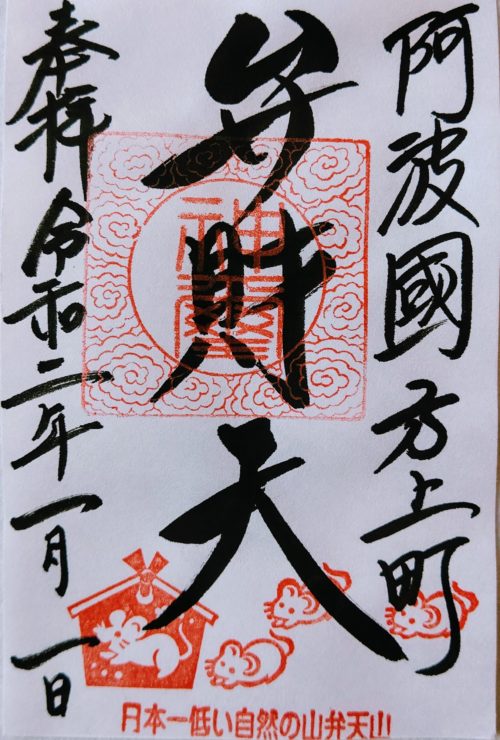 阿波國方上町
弁財天
奉拝 令和二年一月一日
日本一低い自然の山弁天山